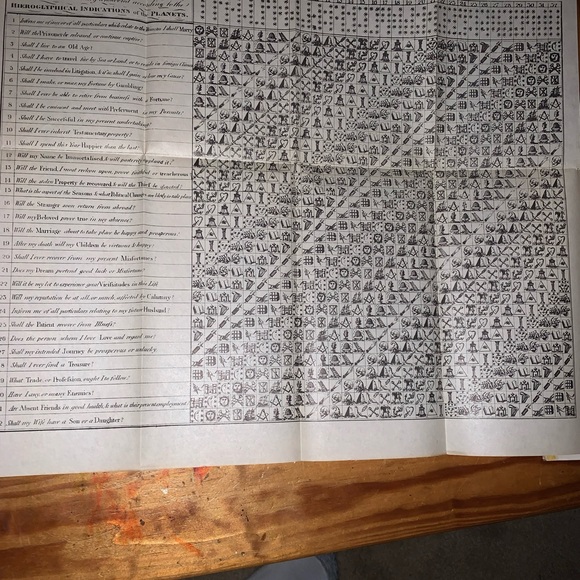 according to the
HIEROGLYPHICAL INDICATIONS of the PLANETS.
25 26 27 28 29 30 31 32
1 Inform me of any or of all particulars which relate to the Woman I shall Marry
2 Will the Prisoner be released, or continue captive?
3 Shall I live to an Old Age?
4 Shall I have to travel far by Sea or Land, or to reside in Foreign Climes?
5 Shall I be involved in Litigation, & if so, shall I gain or lose my Cause?
6 Shall I make, or mar, my Fortune by Gambling?
7 Shall I ever be able to retire from business with a Fortune?
8 Shall I be eminent and meet with Preferment in my Pursuits?
9 Shall I be Successful in my present undertaking?
10 Shall I ever inherit Testamentary property?
11 Shall I spend this Year Happier than the last?
12 Will my Name be Immortalized, & will posterity applaud it?
13 Will the Friend, I most reckon upon, prove faithful or treacherous
Will the stolen Property be recovered, & will the Thief be detected?
15 What is the aspect of the Seasons, & what Political Changes are likely to take place
16 Will the Stranger soon return from abroad?
17 Will my Beloved prove true in my absence?
18 Will the Marriage about to take place be happy and prosperous?
19 After my death will my Children be virtuous & happy?
20 Shall I ever recover from my present Misfortunes?
21 Does my Dream portend good luck or Misfortune?
22 Will it be my lot to experience great Vicissitudes in this Life
23 Will my reputation be at all, or much, affected by Calumny?
24 Inform me of all particulars relating to my future Husband?
25 Shall the Patient recover from Illness?
26 Does the person whom I love Love and regard me?
27 Shall my intended Journey be prosperous or unlucky
28 Shall I ever find a Treasure?
29 What Trade or Profession ought I to follow?
30 Have I any, or many Enemies?
31 Are Absent Friends in good health, & what is their present employment
Shall my Wife have a Son or a Daughter?